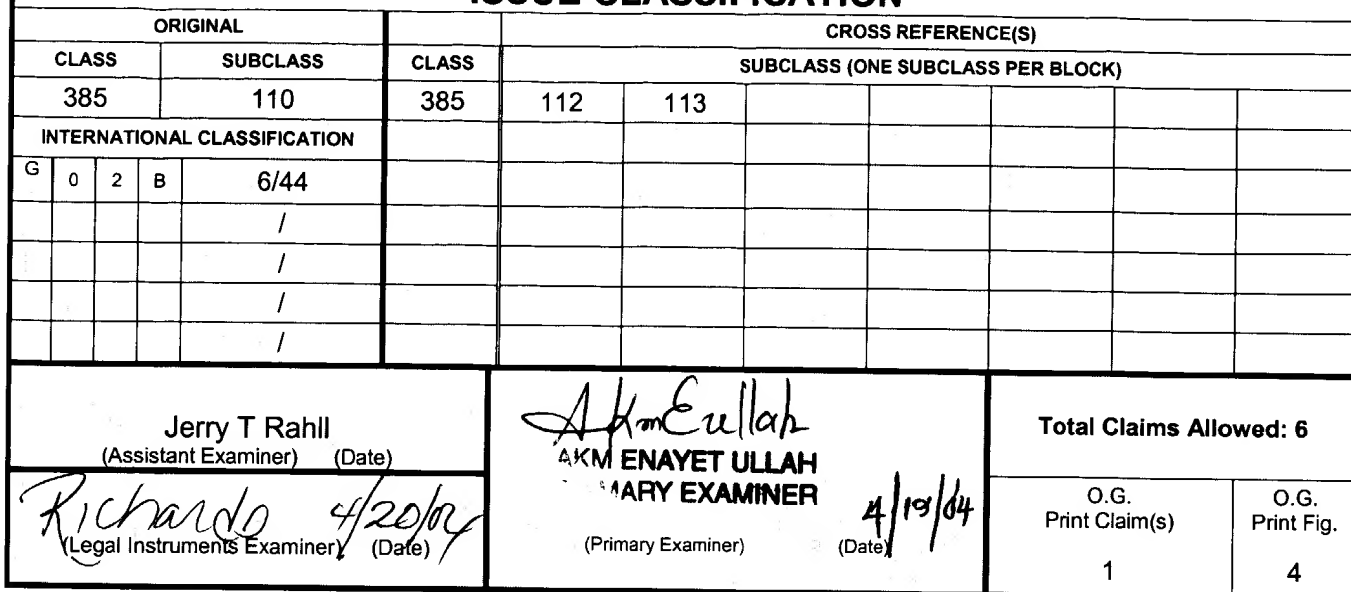 ISSUE CLASSIFICATION
ORIGINAL CROSS REFERENCE(S)
CLASS SUBCLASS CLASS SUBCLASS (ONE SUBCLASS PER BLOCK)
385 110 385 112 113
INTERNATIONAL CLASSIFICATION
G 0 2 B 6/44
/
/
/
/
Jerry T Rahll
(Assistant Examiner) (Date)
Richardo 4/20/04
(Legal Instruments Examiner) (Date)
AKM ENAYET ULLAH
MARY EXAMINER
4/19/04
(Primary Examiner) (Date)
Total Claims Allowed: 6
O.G. Print Claim(s)
1
O.G. Print Fig.
4